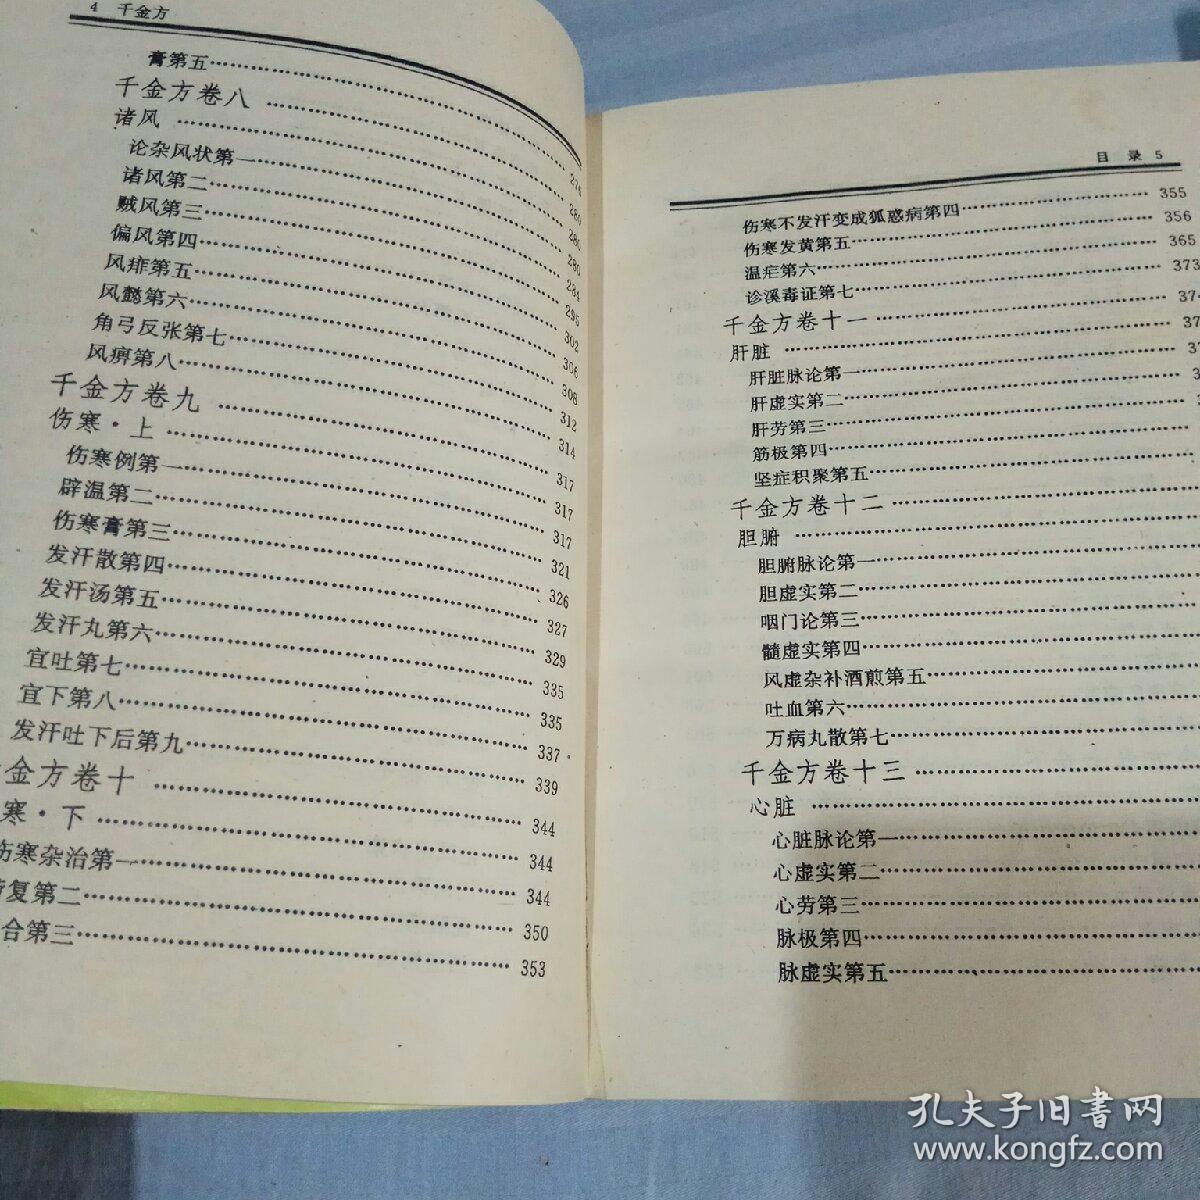 4 千金方
膏第五……274
千金方卷八……280
诸风……280
论杂风状第一……280
诸风第二……284
贼风第三……295
偏风第四……302
风痱第五……306
风懿第六……308
角弓反张第七……312
风痹第八……314
千金方卷九……317
伤寒·上……317
伤寒例第一……317
辟温第二……321
伤寒膏第三……326
发汗散第四……327
发汗汤第五……329
发汗丸第六……335
宜吐第七……335
宜下第八……337
发汗吐下后第九……339
金方卷十……344
寒·下……344
伤寒杂治第一……344
复第二……350
合第三……353
目录 5
伤寒不发汗变成狐惑病第四……355
伤寒发黄第五……356
温疟第六……365
诊溪毒证第七……373
千金方卷十一……374
肝脏……37
肝脏脉论第一……37
肝虚实第二……3
肝劳第三……
筋极第四……
坚症积聚第五……
千金方卷十二……
胆腑……
胆腑脉论第一……
胆虚实第二……
咽门论第三……
髓虚实第四……
风虚杂补酒煎第五……
吐血第六……
万病丸散第七……
千金方卷十三……
心脏……
心脏脉论第一……
心虚实第二……
心劳第三……
脉极第四……
脉虚实第五……
孔夫子旧书网
www.kongfz.com